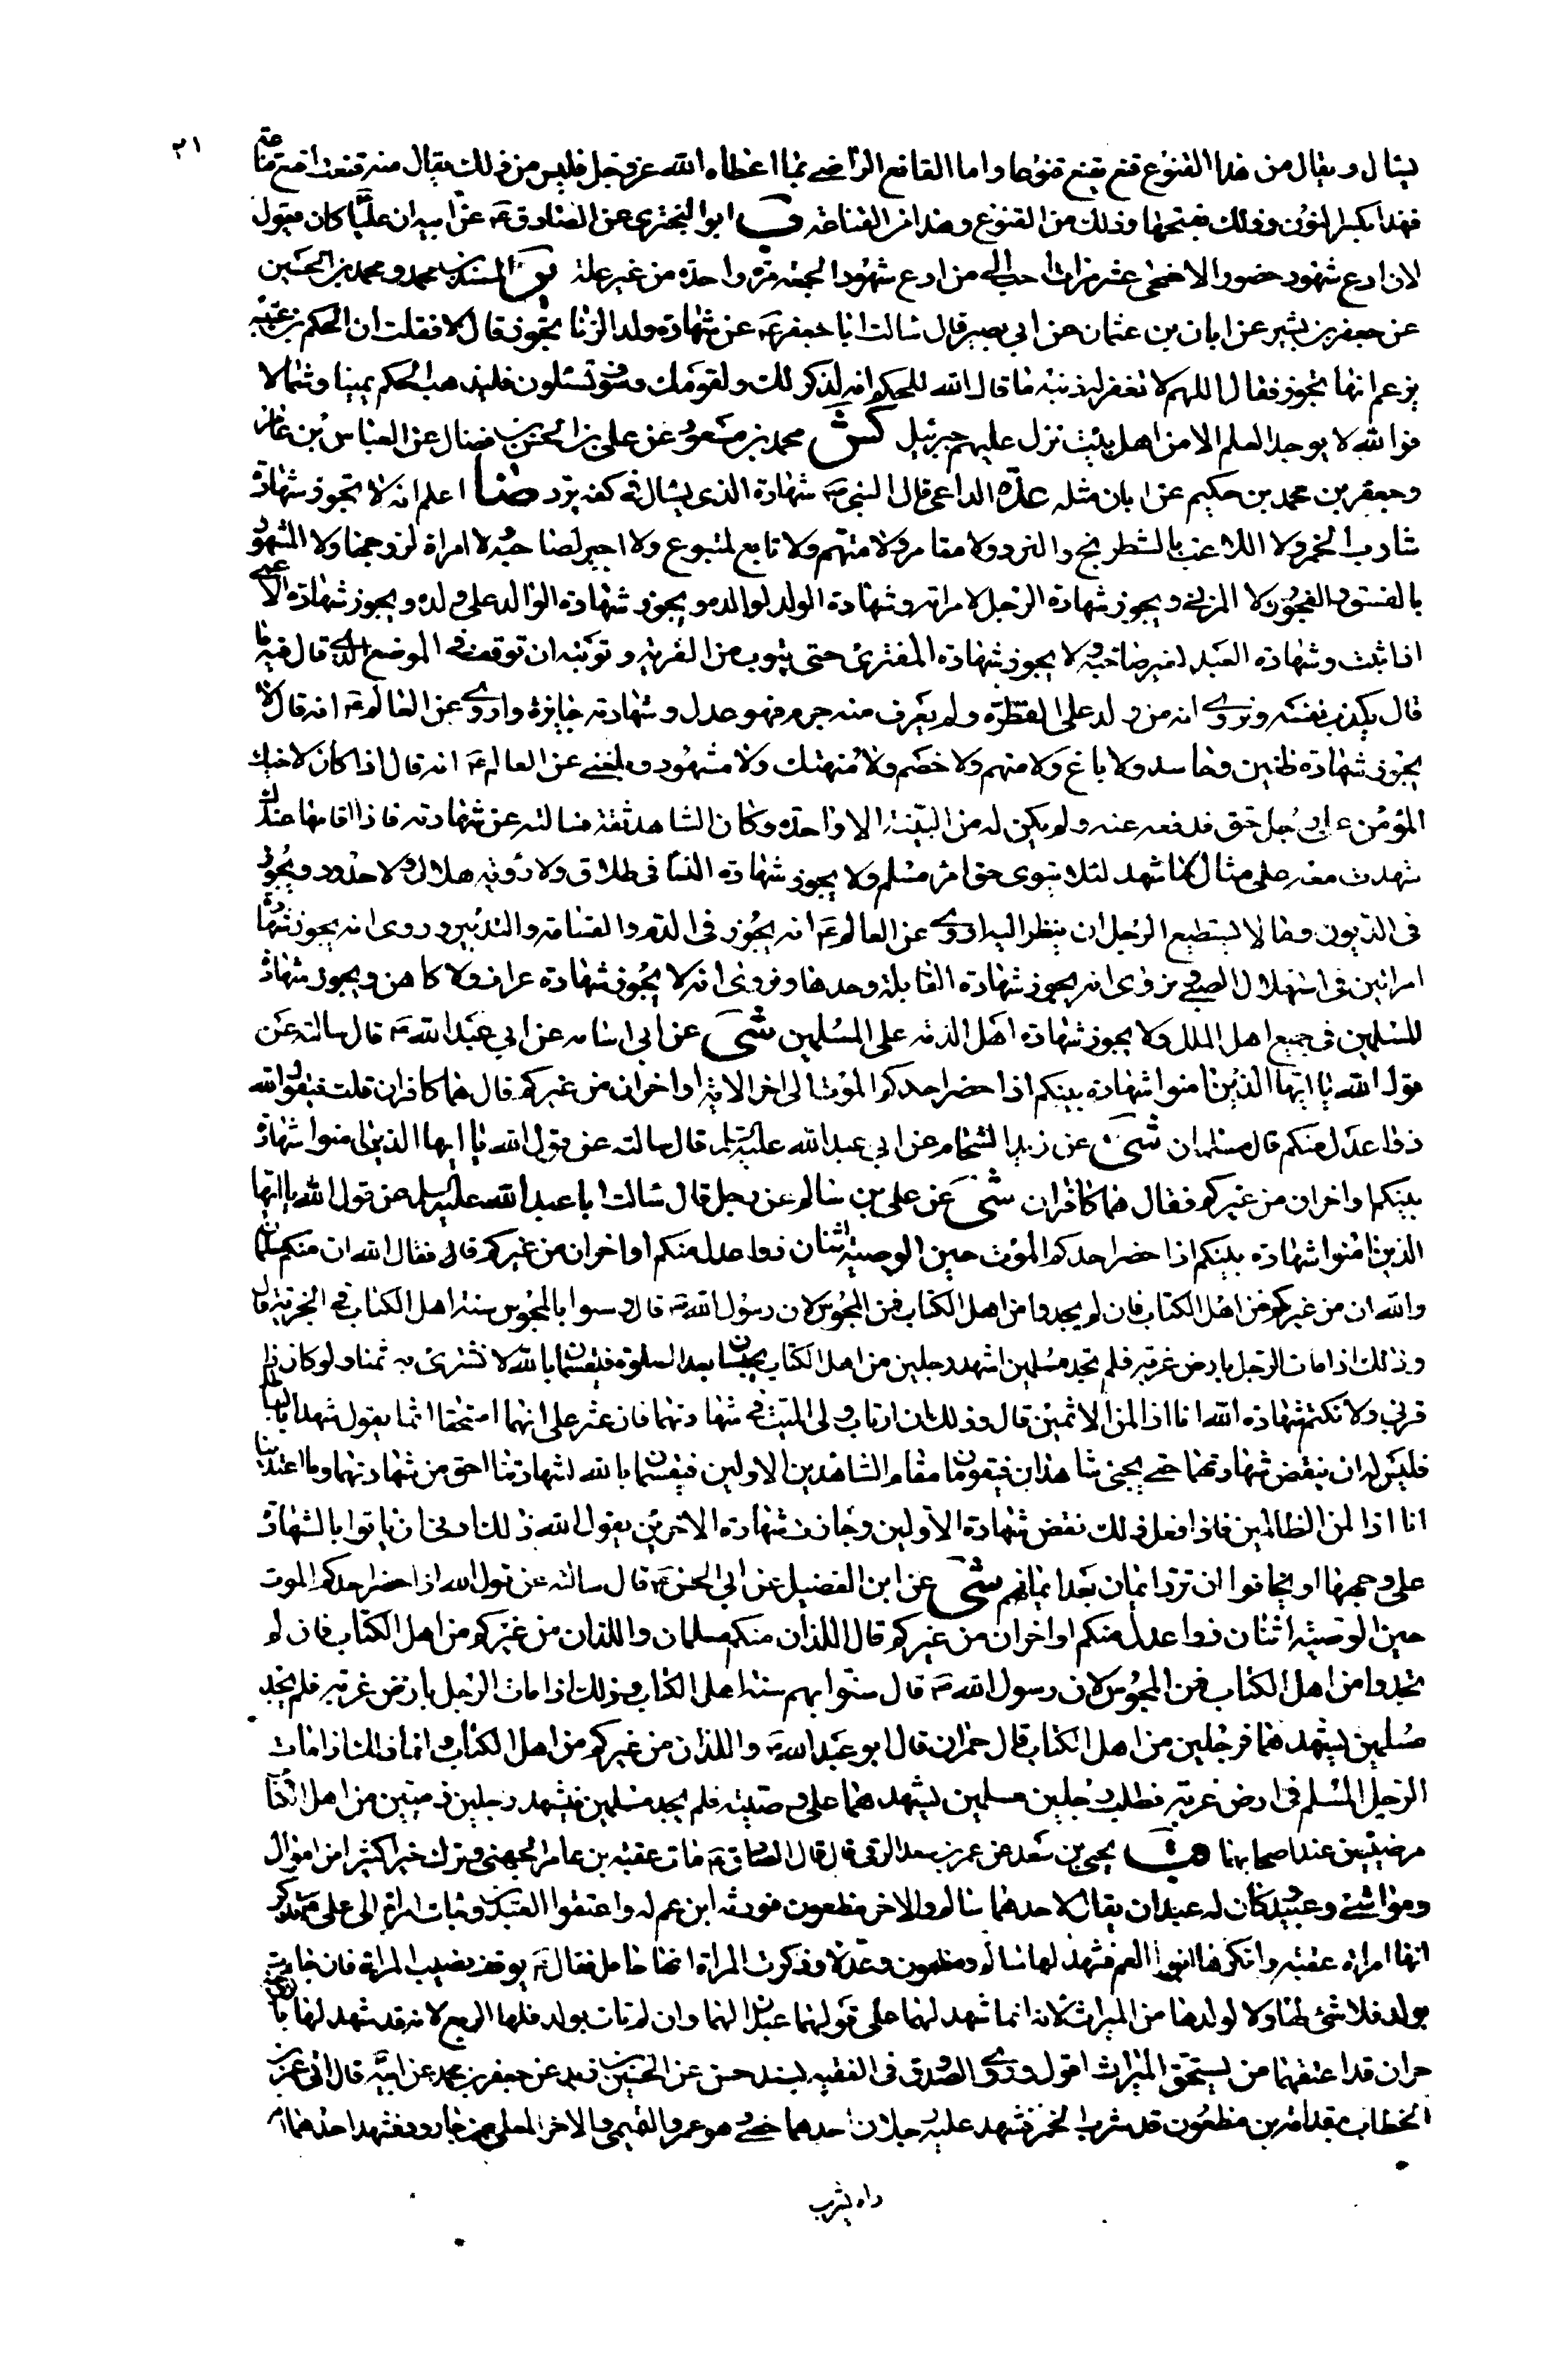 ٢١
يسأل ويقال من هذا القنوع قنع يقنع قنوعا واما القانع الراضي بما اعطاه الله عز وجل فليس من ذلك يقال منه قنعت اقنع قناعة
فهذا بكسر النون وذلك بفتحها وذلك من القنوع وهذا من القناعة ب ابو البختري عن الصادق ع عن ابيه ان عليا كان يقول
لان ادع شهود حضور الاضحى عشر مرات احب الي من ادع شهود الجمعة مرة واحدة من غير علة ير السندي بن محمد ومحمد بن الحسين
عن جعفر بن بشير عن ابان بن عثمان عن ابي بصير قال سالت ابا جعفر ع عن شهادة ولد الزنا يجوز قال لا فقلت ان الحكم بن عتيبة
يزعم انها تجوز فقال اللهم لا تغفر له ذنبه ما قال الله للحكم انه لذكر لك ولقومك وسوف تسئلون فليذهب الحكم يمينا وشمالا
فوالله لا يوجد العلم الا من اهل بيت نزل عليهم جبرئيل كش محمد بن مسعود عن علي بن الحسن بن فضال عن العباس بن عامر
وجعفر بن محمد بن حكيم عن ابان مثله عدة الداعي قال النبي ص شهادة الذي يسال في كفه يرد ضا اعلم انه لا تجوز شهادة
شارب الخمر ولا اللاعب بالشطرنج والنرد ولا مقامر ولا متهم ولا تابع لمتبوع ولا اجير لصاحبه ولا امراة لزوجها ولا المشهور
بالفسق والفجور ولا المربي ويجوز شهادة الرجل لامراته وشهادة الولد لوالده ويجوز شهادة الوالد على ولده ويجوز شهادة الاعمى
اذا ثبت وشهادة العبد لغير صاحبه ولا يجوز شهادة المفتري حتى يتوب من الفرية وتوبته ان توقف في الموضع الذي قال فيه ما
قال يكذب نفسه ونروي انه من ولد على الفطرة ولم يعرف منه جرم فهو عدل وشهادته جايزة واروي عن العالم ع انه قال لا
يجوز شهادة ظنين وحاسد ولا باغ ولا متهم ولا خصم ولا متهتك ولا مشهور وبلغني عن العالم ع انه قال اذا كان لاخيك
المؤمن على رجل حق فدفعه عنه ولم يكن له من البينة الا واحدة وكان الشاهد ثقة فسالته عن شهادته فاذا اقامها عندك
شهدت معه على مثال ما شهد لئلا يتوى حق امرئ مسلم ولا يجوز شهادة النسا في طلاق ولا رؤية هلال ولا حدود ويجوز
في الديون وما لا يستطيع الرجل ان ينظر اليه اروي عن العالم ع انه يجوز في الدم والقسامة والتدبير وروى انه يجوز شهادة
امراتين في استهلال الصبي ونروى انه يجوز شهادة القابلة وحدها ونروى انه لا يجوز شهادة عراف ولا كاهن ويجوز شهادة
المسلمين في جميع اهل الملل ولا يجوز شهادة اهل الذمة على المسلمين شى عن ابي اسامه عن ابي عبد الله ع قال سالته عن
قول الله يا ايها الذين امنوا شهادة بينكم اذا حضر احدكم الموت الى اخر الاية او اخران من غيركم قال هما كافران قلت فيقول الله
ذوا عدل منكم قال مسلمان شى عن زيد الشحام عن ابي عبد الله عليه السلم قال سالته عن قول الله يا ايها الذين امنوا شهادة
بينكم واخران من غيركم فقال هما كافران شى عن علي بن سالم عن رجل قال سالت ابا عبد الله عليه السلم عن قول الله يا ايها
الذين امنوا شهادة بينكم اذا حضر احدكم الموت حين الوصية اثنان ذوا عدل منكم او اخران من غيركم قال فقال الله ان منكم مسلمان
والله ان من غيركم من اهل الكتاب فان لم يجدوا من اهل الكتاب فمن المجوس لان رسول الله ص قال وسنوا بالمجوس سنة اهل الكتاب في الجزية قال
وذلك اذا مات الرجل بارض غربة فلم تجد مسلمين اشهد رجلين من اهل الكتاب يحبسان بعد الصلوة فيقسمان بالله لا نشترى به ثمنا ولو كان ذا
قربى ولا نكتم شهادة الله انا اذا لمن الاثمين قال وذلك ان ارتاب ولى الميت في شهادتهما فان عثر على انهما استحقا اثما يقول شهدا بالباطل
فليس له ان ينقض شهادتهما حتى يجئ شاهدان فيقومان مقام الشاهدين الاولين فيقسمان بالله لشهادتنا احق من شهادتهما وما اعتدينا
انا اذا لمن الظالمين فاذا فعل ذلك نقض شهادة الاولين وجازت شهادة الاخرين يقول الله ذلك ادنى ان ياتوا بالشهادة
على وجهها او يخافوا ان ترد ايمان بعد ايمانهم شى عن ابن الفضيل عن ابي الحسن ع قال سالته عن قول الله اذا حضر احدكم الموت
حين الوصية اثنان ذوا عدل منكم او اخران من غيركم قال اللذان منكم مسلمان واللذان من غيركم من اهل الكتاب فان لم
تجدوا من اهل الكتاب فمن المجوس لان رسول الله ص قال سنوا بهم سنة اهل الكتاب وذلك اذا مات الرجل بارض غربة فلم يجد
مسلمين يشهدهما فرجلين من اهل الكتاب قال حمران قال ابو عبد الله ع واللذان من غيركم من اهل الكتاب وانما ذلك اذا مات
الرجل المسلم في ارض غربة فطلب رجلين مسلمين يشهدهما على وصيته فلم يجد مسلمين فيشهد رجلين ذميين من اهل الكتاب
مرضيين عند اصحابهما قب يحيى بن سعد عن عمر بن سعد الرقى قال قال الصادق ع مات عقبة بن عامر الجهني وترك خيرا كثيرا من اموال
ومواشي وعبيد وكان له عبدان يقال لاحدهما سالم والاخر مظعون فورثه ابن عم له واعتقوا العبدين وجات امراة الى على ع تذكر
انها امراة عقبة وانكرها ابن العم فشهد لها سالم ومظعون وعدلا وذكرت المراة انها حامل فقال ع يوقف نصيب المراة فان جاءت
بولد فلا شئ لها ولا لولدها من الميراث لانه انما شهد لهما على قولهما عبدان لهما وان لم تات بولد فلها الربع لانه قد شهد لها بالزوجية
حران قد اعتقهما من يستحق الميراث اقول وروى الصدوق في الفقيه بسند حسن عن الحسين بن زيد عن جعفر بن محمد عن ابيه قال اتى عمر بن
الخطاب بقدامة بن مظعون قد شرب الخمر فشهد عليه رجلان احدهما خصي وهو عمرو التميمي والاخر المعلى بن جارود فشهد احدهما انه
راه يشرب